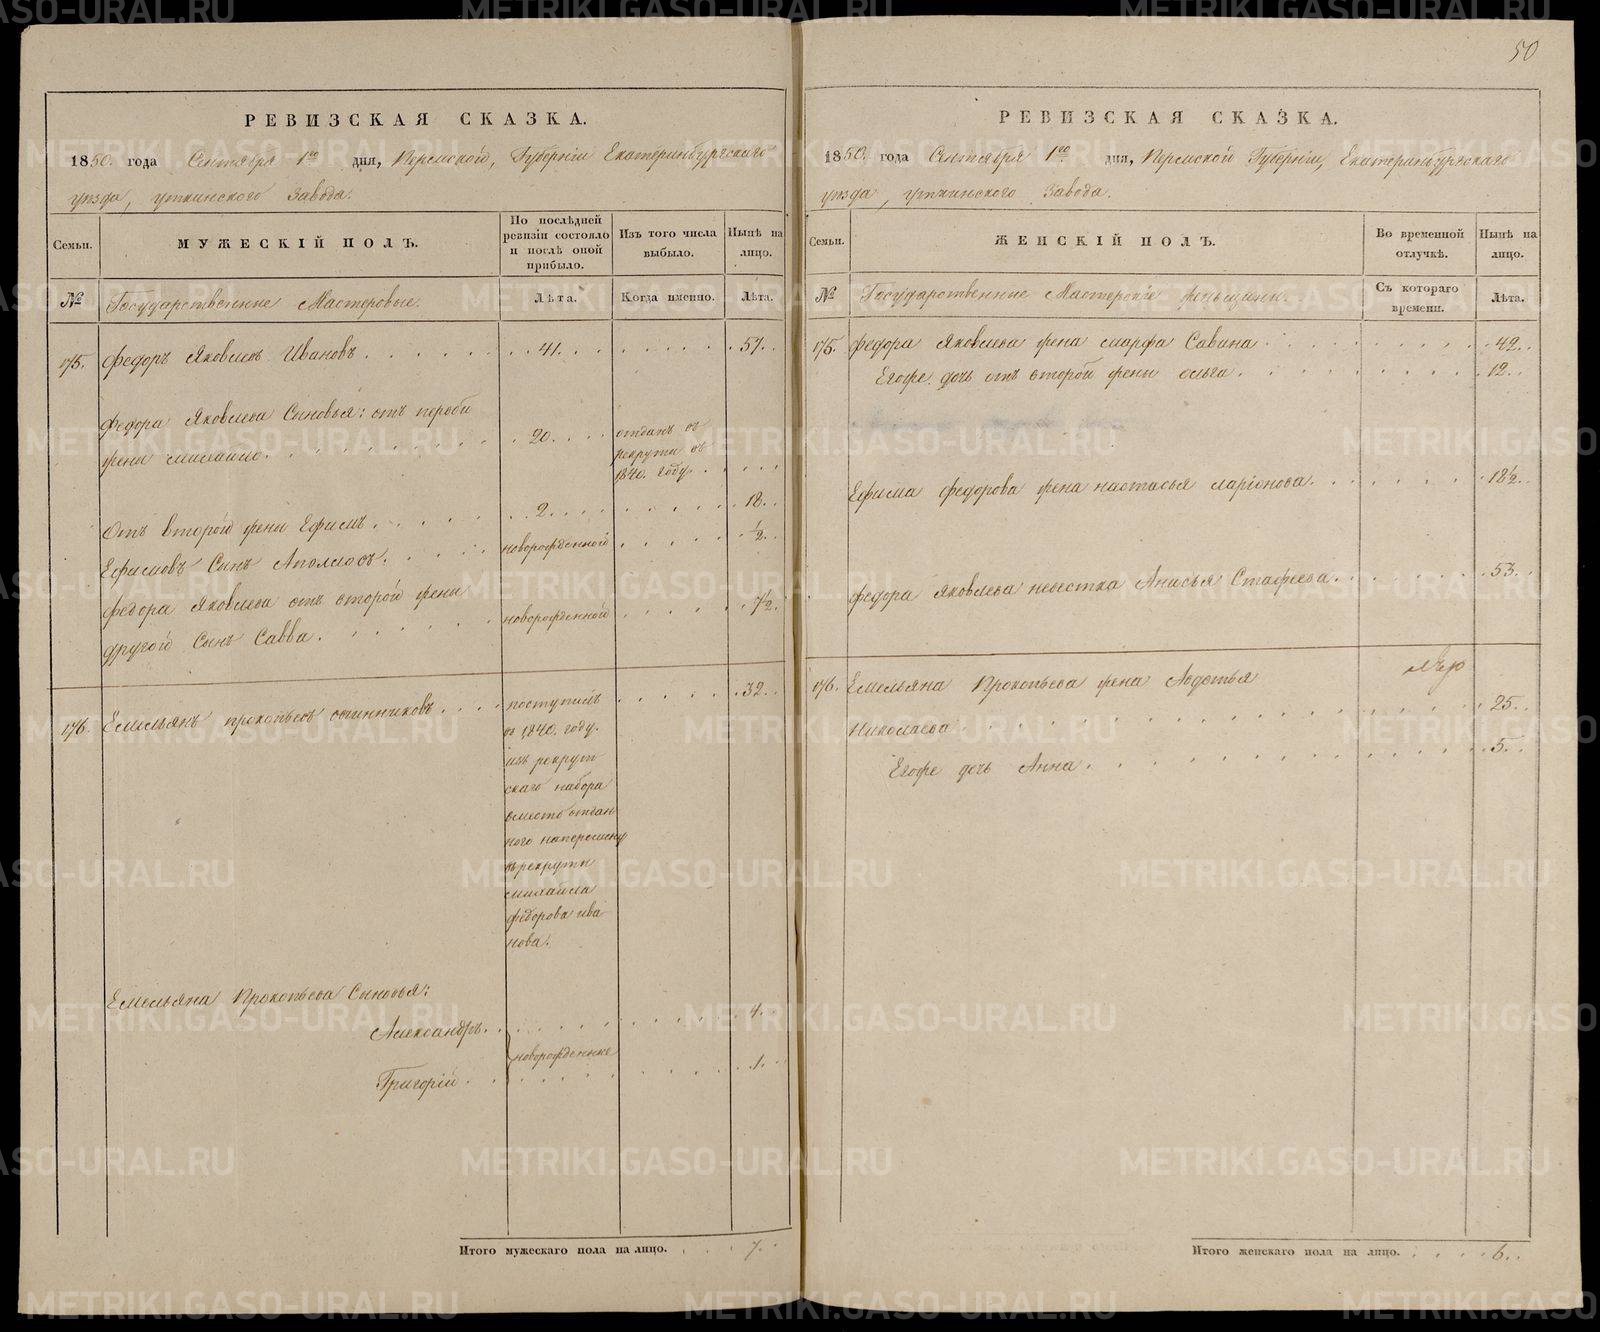 50
РЕВИЗСКАЯ СКАЗКА.
1850. года Сентября 1го дня, Пермской, Губерніи Екатеринбургскаго
уѣзда, уткинского Завода.
Семьи.
МУЖЕСКІЙ ПОЛЪ.
По послѣдней
ревизіи состояло
и послѣ оной
прибыло.
Изъ того числа
выбыло.
Нынѣ на
лицо.
№
Государственные Мастеровые.
Лѣта.
Когда именно.
Лѣта.
175. Федоръ Яковлевъ Ивановъ . . . 41. . . . 57. .
Федора Яковлева Сыновья: отъ первой
жены Михайло. . . . 20. . . .
отданъ въ
рекруты въ
1840. году. . . . .
Отъ второй жены Ефимъ . . . 2. . . . 18. .
Ефимовъ Сынъ Аполлосъ. . . . новорожденной . . . 1/2. .
Федора Яковлева отъ второй жены
другой Сынъ Савва. . . . новорожденной . . . 7 1/2.
176. Емельянъ прокопьевъ овчинниковъ . . . . 32. .
поступилъ
въ 1840. году.
изъ рекрут
скаго набора
вместо отдан
ного
въ рекруты
михайла
федорова ива
нова.
Емельяна Прокопьева Сыновья:
Александръ. . . . 4. .
новорожденные
Григорій . . . 1. .
Итого мужескаго пола на лицо. . . . 7. .
РЕВИЗСКАЯ СКАЗКА.
1850. года Сентября 1го дня, Пермской Губерніи, Екатеринбургскаго
уѣзда, уткинского Завода.
Семьи.
ЖЕНСКІЙ ПОЛЪ.
Во временной
отлучкѣ.
Нынѣ на
лицо.
№
Государственные Мастерскіе женьщины.
Съ котораго
времени.
Лѣта.
175. Федора Яковлева жена марфа Савина . . . 42. .
Егоже дочь отъ второй жены ольга. . . . 12. .
Ефима федорова жена настасья ларіонова. . . . 18 1/2. .
федора яковлева невестка Анисья Стафеева. . . . 53. .
176. Емельяна Прокопьева жена Авдотья
Николаева . . . 25. .
Егоже дочь Анна . . . 5. .
Итого женскаго пола на лицо. . . . 6. .
METRIKI.GASO-URAL.RU